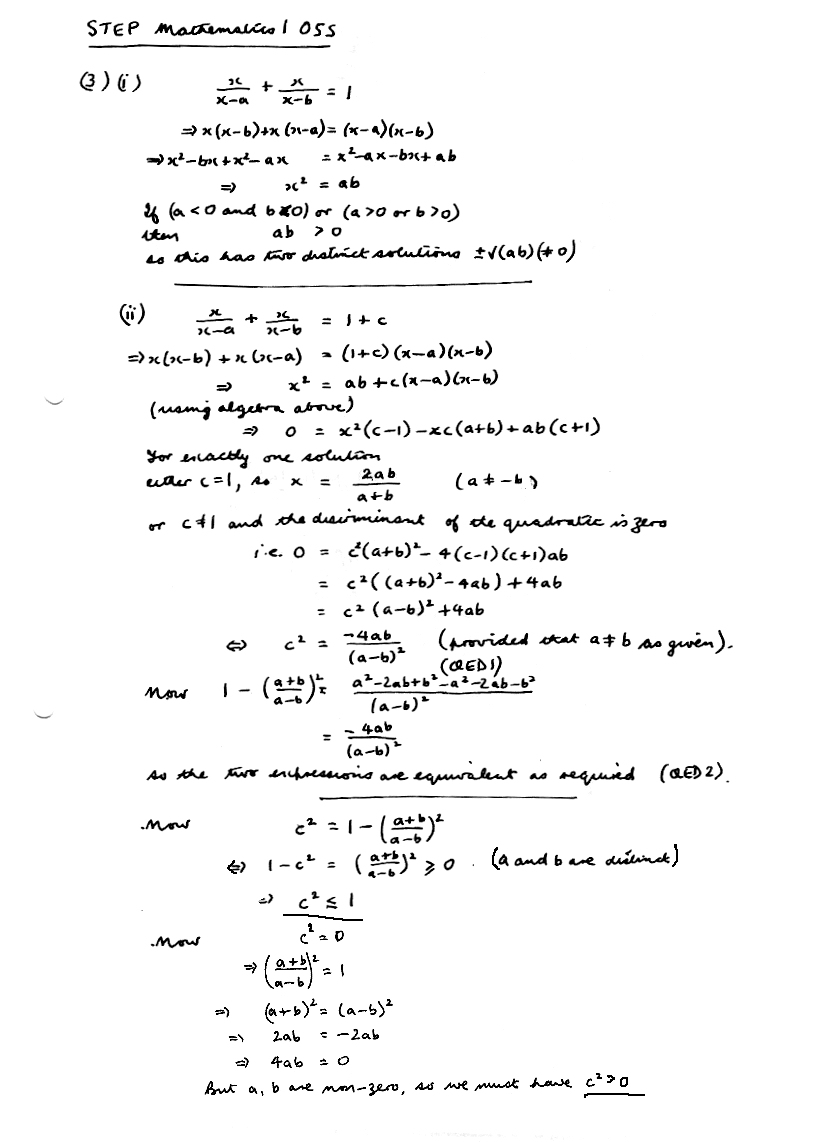 STEP Mathematics I 05S
(3) (i) x/(x-a) + x/(x-b) = 1
⇒ x(x-b)+x(x-a) = (x-a)(x-b)
⇒ x²-bx+x²-ax = x²-ax-bx+ab
⇒ x² = ab
If (a<0 and b<0) or (a>0 or b>0)
then ab > 0
so this has two distinct solutions ±√(ab) (≠0)
(ii) x/(x-a) + x/(x-b) = 1+c
⇒ x(x-b) + x(x-a) = (1+c)(x-a)(x-b)
⇒ x² = ab+c(x-a)(x-b)
(using algebra above)
⇒ 0 = x²(c-1)-xc(a+b)+ab(c+1)
For exactly one solution
either c=1, so x = 2ab/(a+b) (a≠-b)
or c≠1 and the discriminant of the quadratic is zero
i.e. 0 = c²(a+b)²-4(c-1)(c+1)ab
= c²((a+b)²-4ab)+4ab
= c²(a-b)²+4ab
⇔ c² = -4ab/(a-b)² (provided that a≠b as given).
(QED1)
Now 1-((a+b)/(a-b))² = (a²-2ab+b²-a²-2ab-b²)/(a-b)²
= -4ab/(a-b)²
so the two expressions are equivalent as required (QED2).
Now c² = 1-((a+b)/(a-b))²
⇔ 1-c² = ((a+b)/(a-b))² ≥ 0. (a and b are distinct)
⇒ c² ≤ 1
Now c² = 0
⇒ ((a+b)/(a-b))² = 1
⇒ (a+b)² = (a-b)²
⇒ 2ab = -2ab
⇒ 4ab = 0
But a, b are non-zero, so we must have c²>0